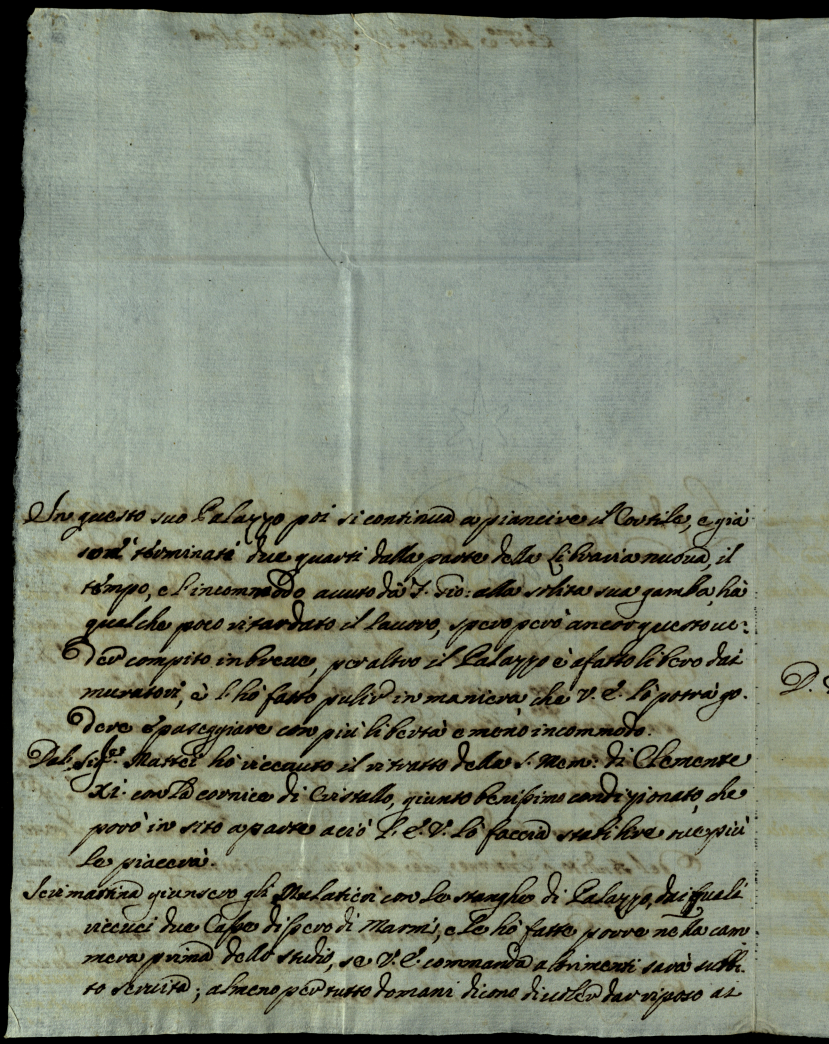 In questo suo Palazzo poi si continua a piancire il Cortile, e già
sono terminati due quarti dalla parte della Libraria nuova, il
tempo, e l'incommodo avuto da S. Gio: alla solita sua gamba, hà
qualche poco ritardato il lavoro, spero però ancor questo ve:
der compito in breve, per altro il Palazzo è afatto libero dai
muratori, è l'hò fatto pulir in maniera, che V. E. lo potrà go.
dere e paseggiare con più libertà e meno incommodo.
Dal Sigr. Mattei hò riceauto il ritratto della S. Mem: di Clemente
XI. con la cornice di Cristallo, giunto benissimo condizionato, che
porò in sito a parte aciò l'E. V. lo faccia stabilire ove più
le piacerà.
Ieri mattina giunsero gli Mulatieri con le stanghe di Palazzo, dai quali
riceuci due Casse di pero di Marmi, e le hò fatte porre nella cam
mera prima dello studio, se V. E. commanda altrimenti sarà subbi.
to servita; almeno per tutto domani dicono di voler dar riposo ai
D.